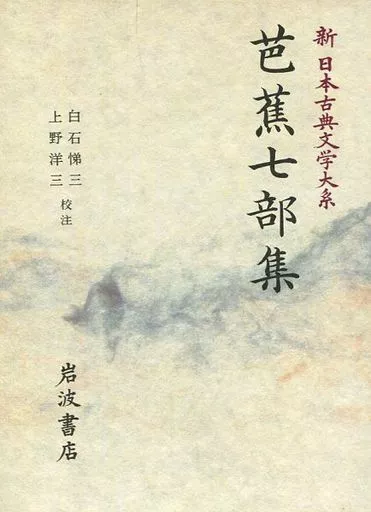 新 日本古典文学大系
芭蕉七部集
白石悌三
上野洋三
校注
岩波書店